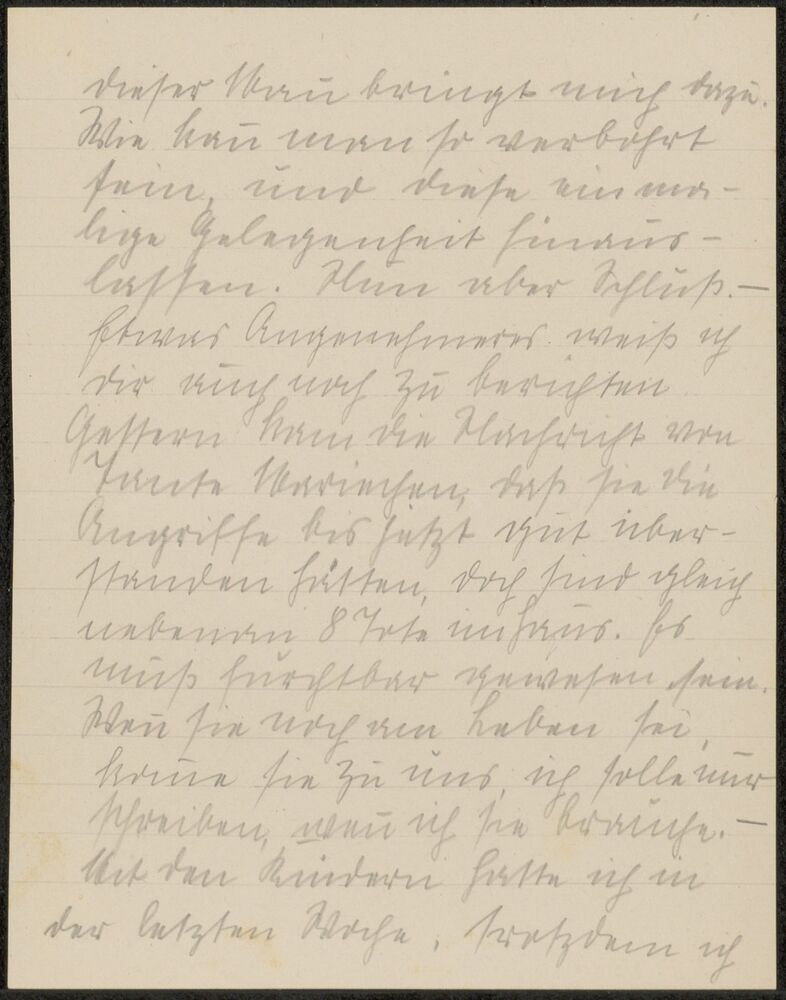 dieser Mañ bringt mich dazu.
Wie kañ man so verbohrt
sein, und diese einma-
lige Gelegenheit hinaus-
lassen. Nun aber Schluß. –
Etwas Angenehmeres weiß ich
dir auch noch zu berichten
Gestern kam die Nachricht von
Tante Mariechen, daß sie die
Angriffe bis jetzt gut über-
standen hätten, doch sind gleich
nebenan 8 Tote im Haus. Es
muß furchtbar gewesen sein.
Weñ sie noch am Leben sei,
kom̄e sie zu uns, ich solle nur
schreiben, weñ ich sie brauche. –
Mit den Kindern hatte ich in
der letzten Woche, trotzdem ich